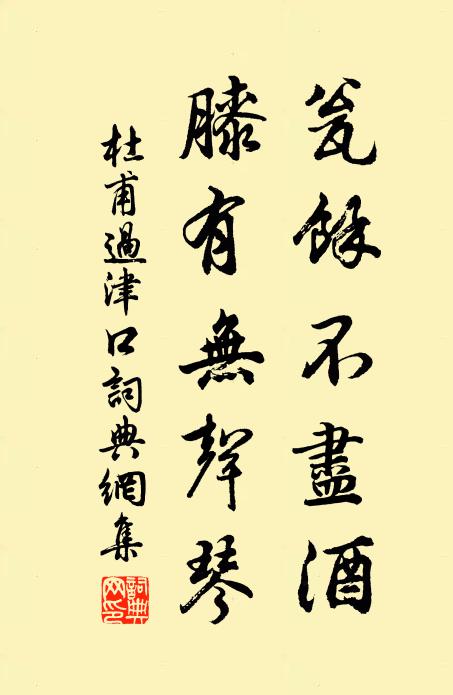 瓮餘不盡酒
膝有無聲琴
杜甫過津口詞典網集
詞典網印